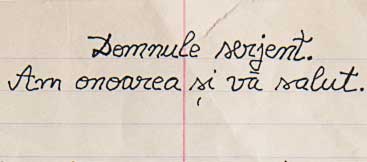 Domnule serjent.
Am onoarea și vă salut.